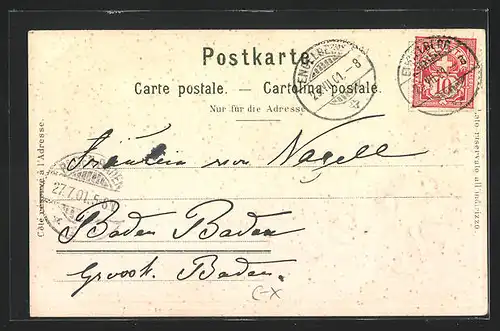 Postkarte.
Carte postale. — Cartolina postale.
Nur für die Adresse
Côté réservé à l'Adresse.
Lato riservato all'indirizzo
ENGELBERG
VII.01. - 8
ENGELBERG
10
27.7.01. 5-6
Fräulein von Nagell
Baden Baden
Baden.
C-X